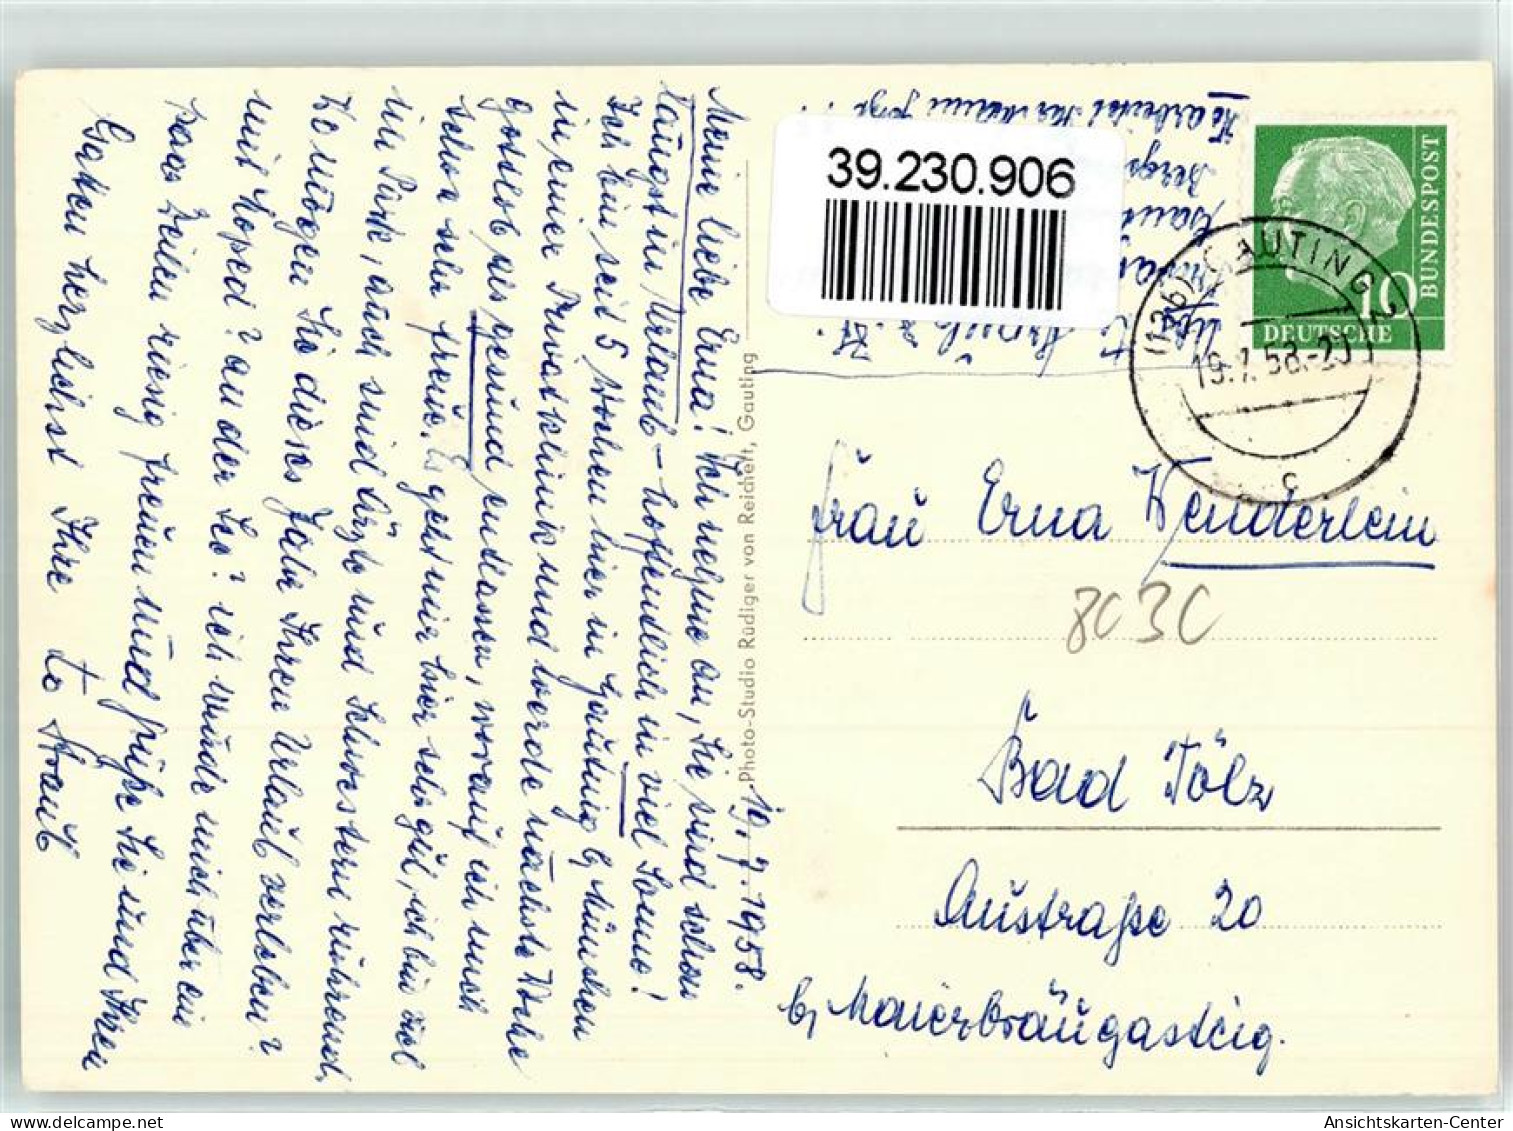 19.7.1958.
Meine liebe Erna! Ich nehme an, Sie sind schon
längst im Urlaub - hoffentlich in viel Sonne!
Ich bin seit 5 Wochen hier in Gauting b/ München
in einer Privatklinik und werde nächste Woche
gottlob als gesund entlassen, worauf ich mich
schon sehr freue. Es geht mir hier sehr gut, ich bin viel
im Park, auch sind Ärzte und Schwestern rührend.
Wo mögen Sie dieses Jahr Ihren Urlaub verleben?
mit Moped? an der See? ich würde mich über ein
paar Zeilen riesig freuen und grüße Sie und Ihren
Gatten herzlichst Ihre
Photo-Studio Rüdiger von Reichert, Gauting
39.230.906
DEUTSCHE
BUNDESPOST
10
GAUTING 2
19.7.58.-20
c
Frau Erna Wenderlein
Bad Tölz
Austraße 20
b/ Maierbräugasteig.
Ansichtskarten-Center